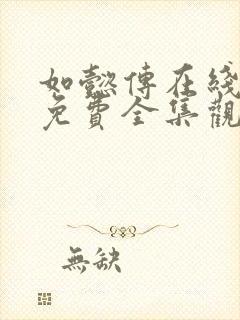 如懿傳在綫
免費全集觀
無缺